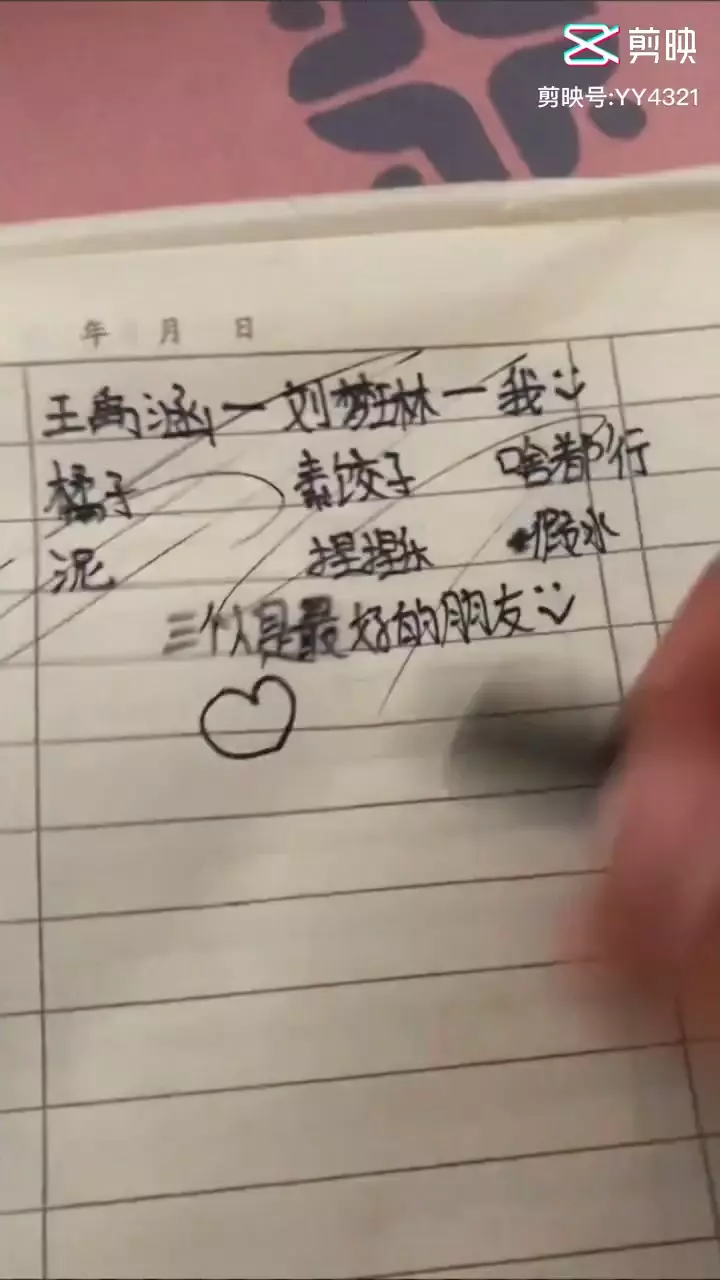 剪映
剪映号:YY4321
年 月 日
王禹涵一刘梦琳一我
橘子 素饺子 啥都行
泥 捏捏乐 假水
三个人是最好的朋友